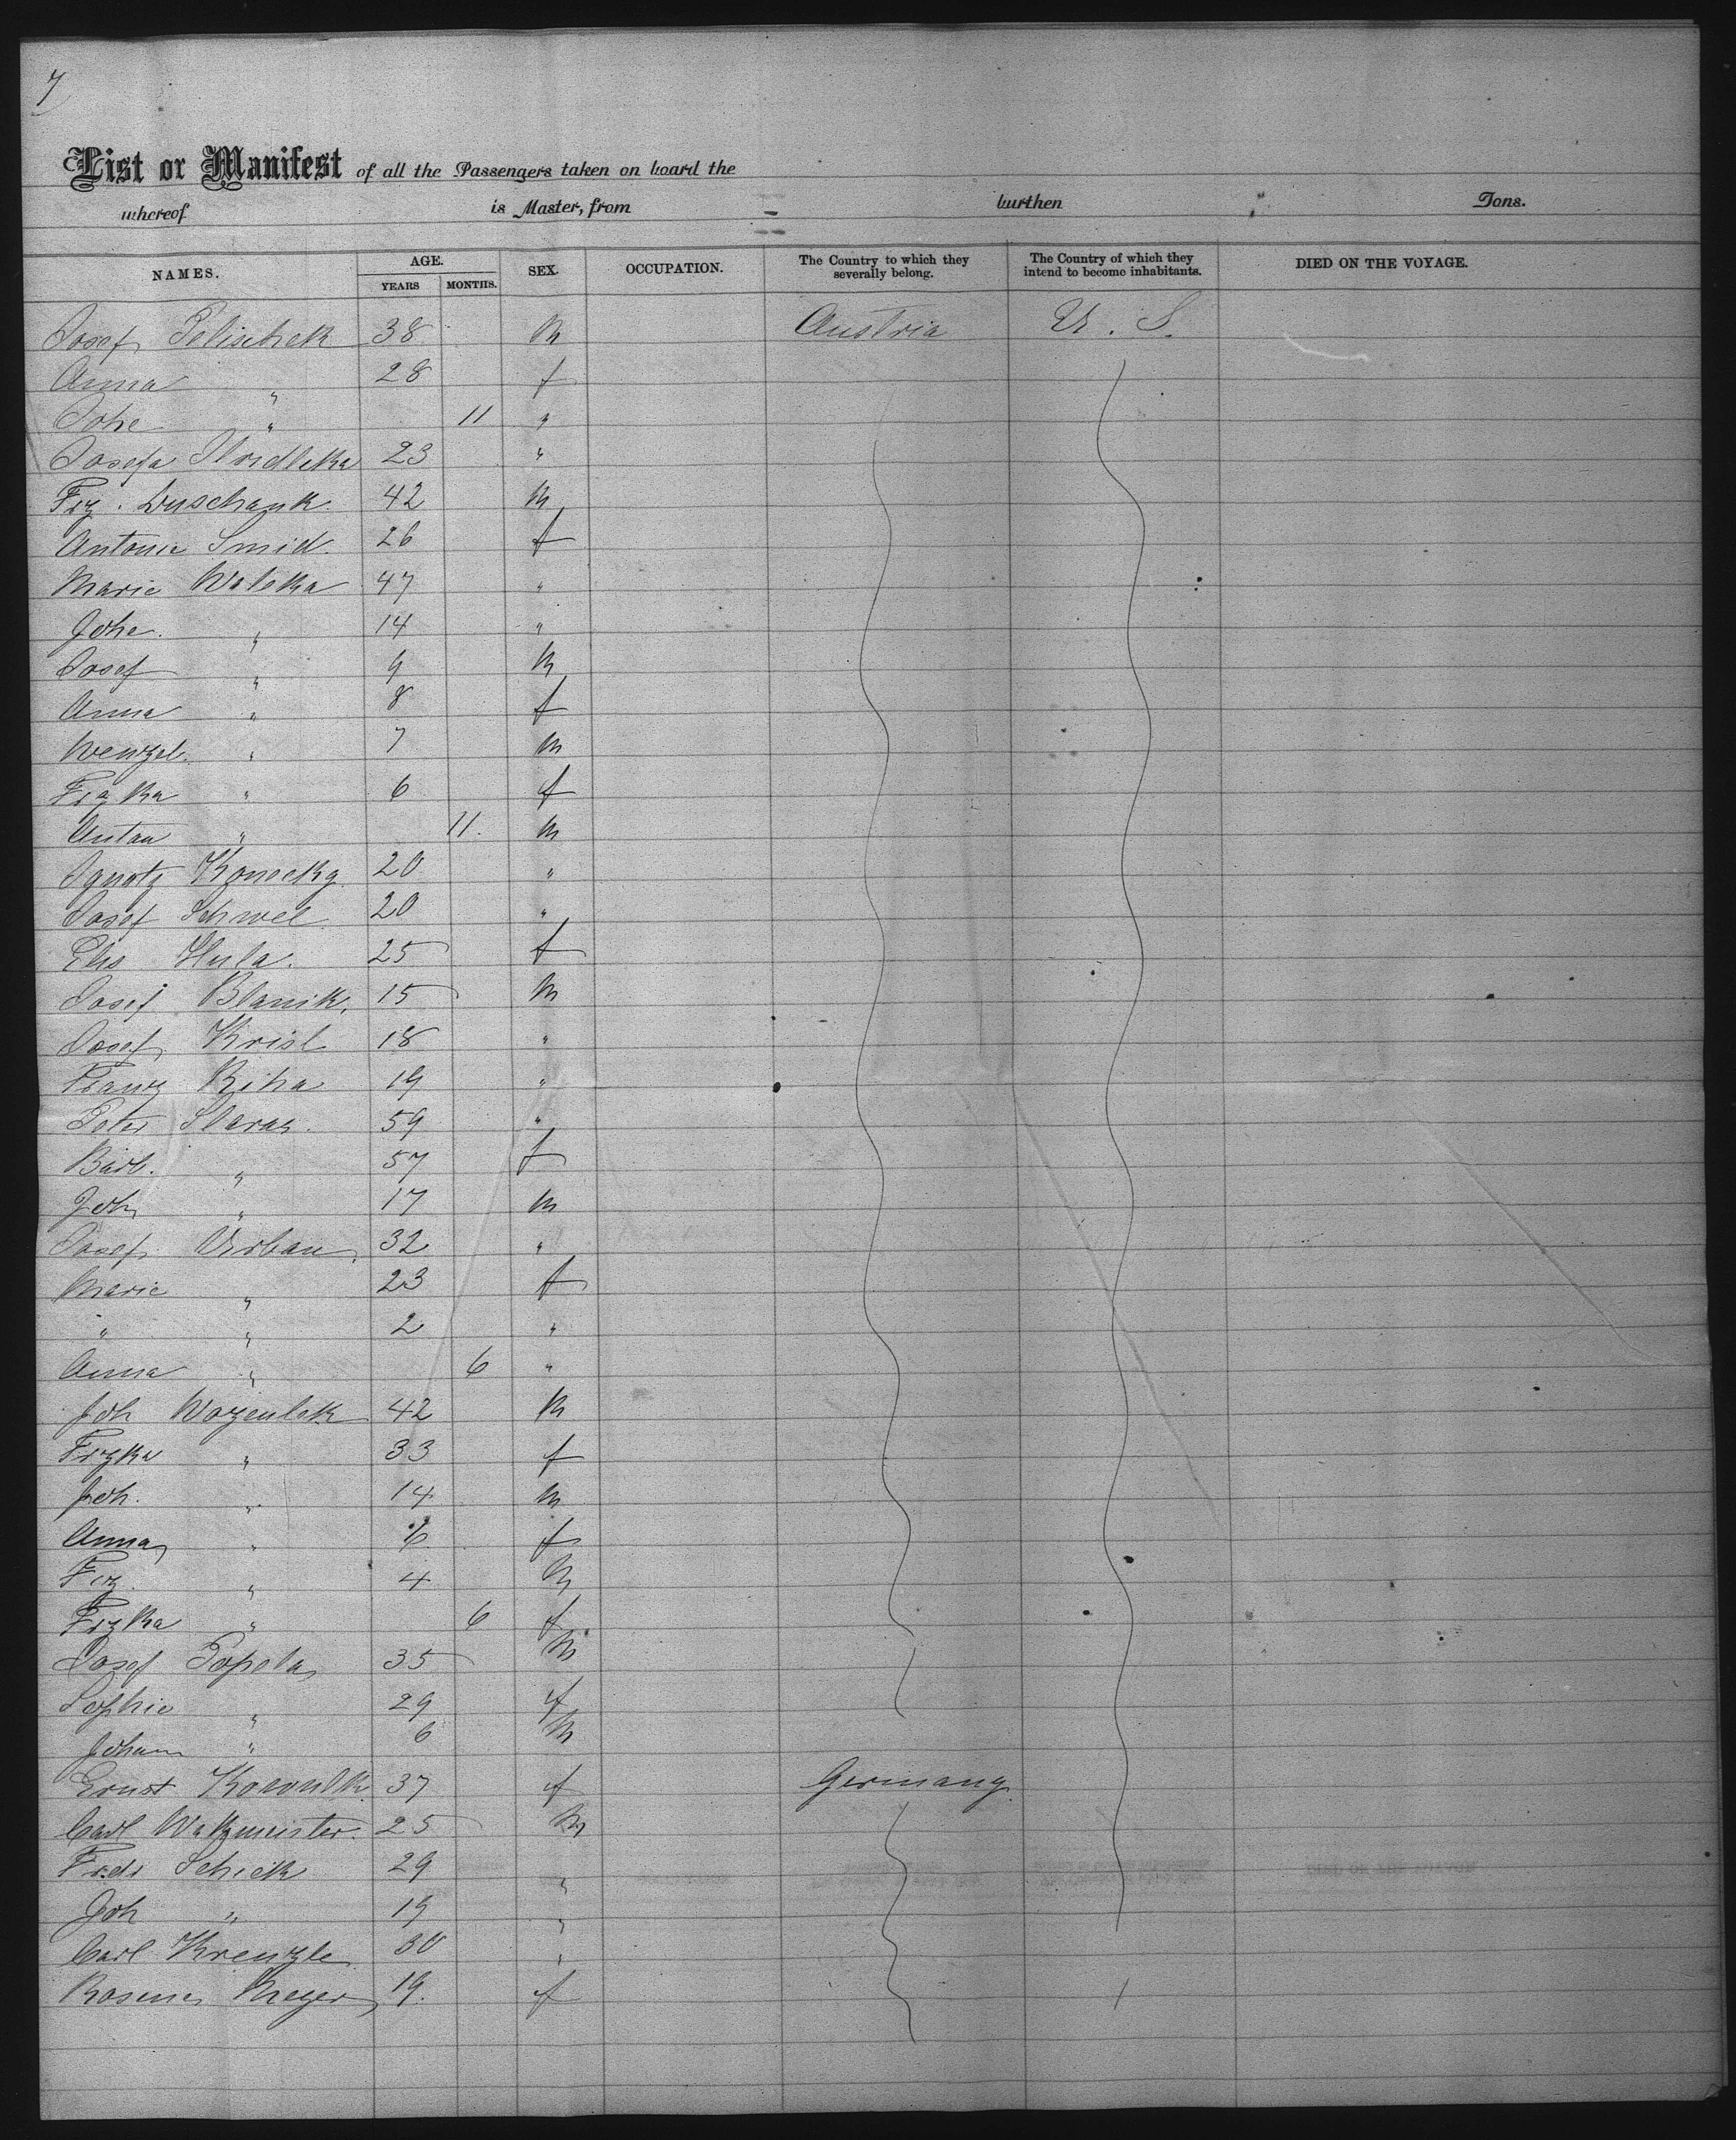 7
List or Manifest of all the Passengers taken on board the
whereof is Master, from burthen Tons.
NAMES. AGE. YEARS MONTHS. SEX. OCCUPATION. The Country to which they severally belong. The Country of which they intend to become inhabitants. DIED ON THE VOYAGE.
Josef Pelischek 38 m Austria U. S.
Anna " 28 f
Johe " 11 "
Josefa 23 "
Frz. Duschank 42 m
Antonie Smid. 26 f
Marie Waleka 47 "
Johe. " 14 "
Josef " 9 m
Anna " 8 f
Wenzel. " 7 m
Frzka " 6 f
Anton " 11. m
Ignatz Konecky 20 "
Josef Schwel 20 "
Elis Hula. 25 f
Josef Blanik, 15 m
Josef Krisl 18 "
Franz Riha 19 "
Peter 59 "
Barb. " 57 f
Joh " 17 m
Josef Urban, 32 "
Marie " 23 f
" " 2 "
Anna " 6 "
Joh Wozenlek 42 m
Frzka " 33 f
Joh. " 14 m
Anna " 6 f
Frz. " 4 m
Frzka " 6 f
Josef Popela 35 m
Sophie " 29 f
Johann " 6 m
Ernst 37 f Germany.
Carl Wakmeister. 25 m
Fredr Schick 29 "
Joh " 19 "
Carl Krenzle 30 "
Rosine Meyer 19. f